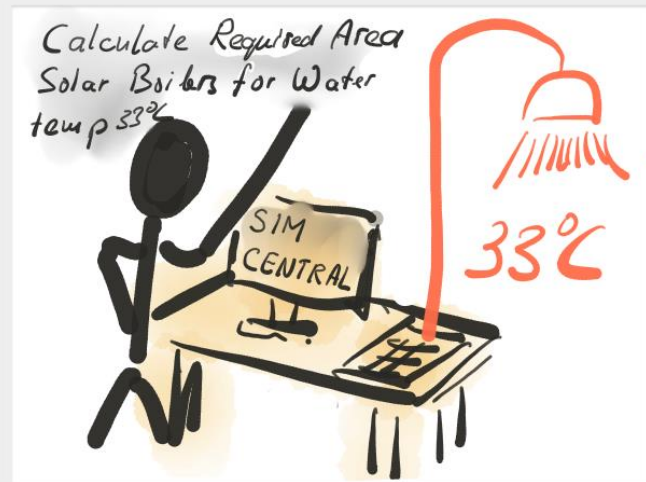 Calculate Required Area
Solar Boilers for Water
temp 33°C
SIM
CENTRAL
33°C